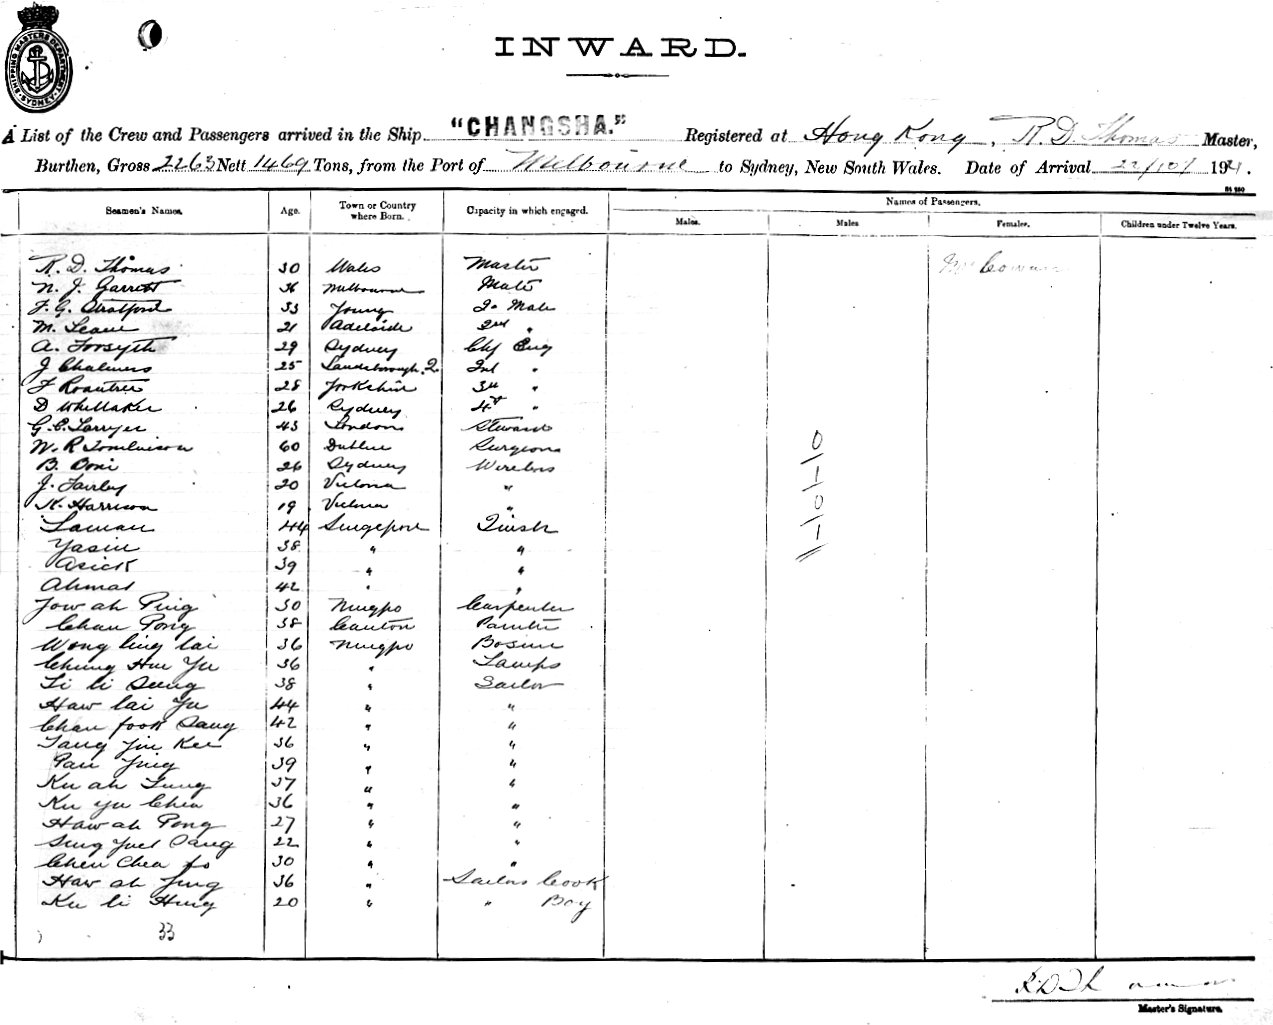 SHIPPING MASTERS DEPARTMENT SYDNEY
INWARD.
A List of the Crew and Passengers arrived in the Ship "CHANGSHA." Registered at Hong Kong, R. D. Thomas Master,
Burthen, Gross 2263 Nett 1469 Tons, from the Port of Melbourne to Sydney, New South Wales. Date of Arrival 22/10/ 1921.
Names of Passengers.
Seamen's Names. Age. Town or Country where Born. Capacity in which engaged. Males. Males Females. Children under Twelve Years.
R. D. Thomas 30 Wales Master
N. J. Garrett 36 Melbourne Mate
F. G. Stratford 33 Young 2n Mate
M. Leane 21 Adelaide 3rd "
A. Forsyth 29 Sydney Chf Eng
J Chalmers 25 Landsborough. Q. 2nd "
F Rountree 28 Yorkshire 3rd "
D Whittaker 26 Sydney 4th "
G. C. Sawyer 43 London Steward
W. R Tomlinson 60 Dublin Surgeon
B. Boni 26 Sydney Wireless
J. Fairley 20 Victoria "
K. Harrison 19 Victoria "
44 Singapore
Yasin 38 " "
Asick 39 " "
Ahmat 42 " "
Yow ah Ping 30 Ningpo Carpenter
Chan Pong 38 Canton Painter
Wong Ling Lai 36 Ningpo Bosun
Chung Hue Yu 36 " Lamps
Li Li Seeng 38 " Sailor
Haw Lai Yu 44 " "
Chan Fook Sang 42 " "
Tang Jin Kee 36 " "
Pau Jing 39 " "
Ku ah Tung 37 " "
Ku Yu Chia 36 " "
Haw ah Pong 27 " "
Sing Yuet Sang 22 " "
Chen Chea fo 30 " "
Haw ah Jing 36 " Sailors Cook
Ku Li Hung 20 " " Boy
33
R D Thomas
Master's Signature.